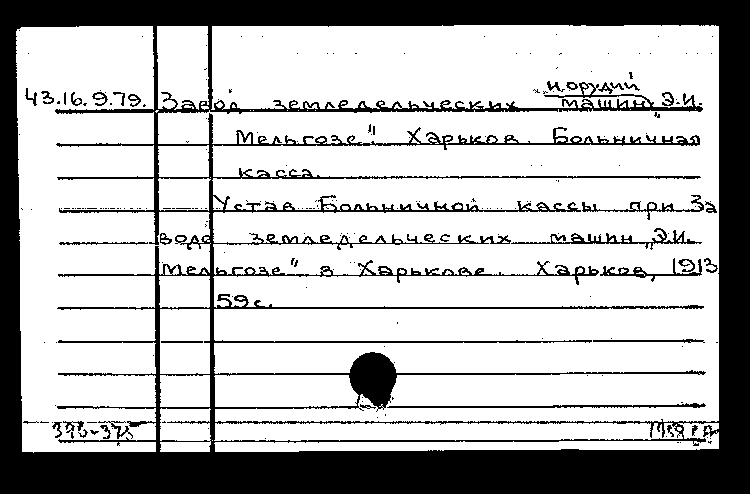 и орудий
43.16.9.79. Завод земледельческих машин „Э.И.
Мельгозе" Харьков. Больничная
касса.
Устав Больничной кассы при За
воде земледельческих машин „Э.И.
Мельгозе" в Харькове. Харьков, 1913
59 с.